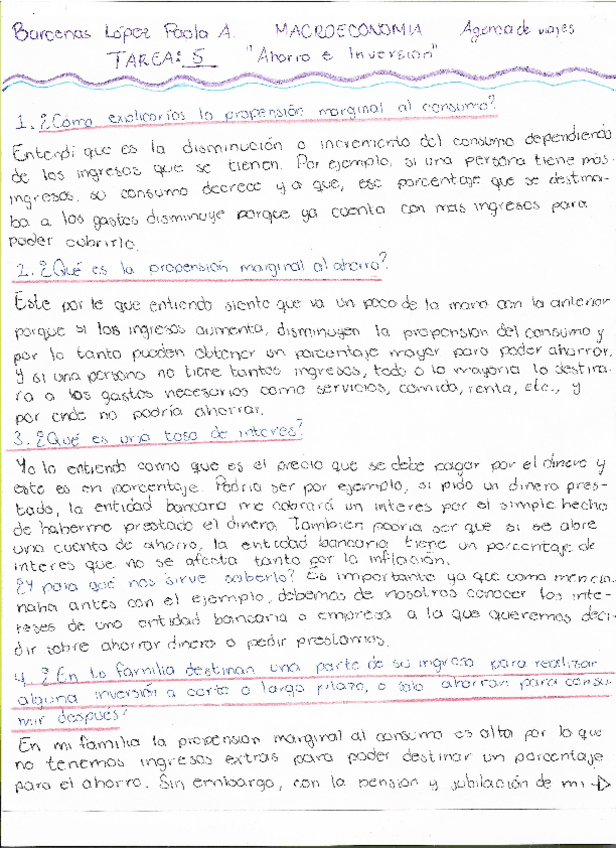 Barcenas López Paola A. MACROECONOMIA Agencia de viajes
TAREA: 5 "Ahorro e Inversión"
1. ¿Cómo explicarías la propensión marginal al consumo?
Entendí que es la disminución o incremento del consumo dependiendo
de los ingresos que se tienen. Por ejemplo, si una persona tiene más
ingresos, su consumo decrece ya que, ese porcentaje que se destina-
ba a los gastos disminuye porque ya cuenta con mas ingresos para
poder cubrirlo.
2. ¿Qué es la propensión marginal al ahorro?
Este por lo que entiendo siento que va un poco de la mano con la anterior
porque si los ingresos aumenta, disminuyen la propension del consumo y
por lo tanto pueden obtener un porcentaje mayor para poder ahorrar.
Y si una persona no tiene tantos ingresos, todo o la mayoria lo destina-
ra a los gastos necesarios como servicios, comida, renta, etc., y
por ende no podría ahorrar.
3. ¿Qué es una tasa de interes?
Yo lo entiendo como que es el precio que se debe pagar por el dinero y
este es en porcentaje. Podria ser por ejemplo, si pido un dinero pres-
tado, la entidad bancaria me cobrará un interes por el simple hecho
de haberme prestado el dinero. También podria ser que si se abre
una cuenta de ahorro, la entidad bancaria tiene un porcentaje de
interes que no se afecta tanto por la inflación.
¿Y para qué nos sirve saberlo? Es importante ya que como mencio-
naba antes con el ejemplo, debemos de nosotros conocer los inte-
reses de una entidad bancaria o empresa a la que queremos deci-
dir sobre ahorrar dinero o pedir prestamos.
4. ¿En tu familia destinan una parte de su ingreso para realizar
alguna inversión a corto o largo plazo, o solo ahorran para consu-
mir después?
En mi familia la propension marginal al consumo es alta por lo que
no tenemos ingresos extras para poder destinar un porcentaje
para el ahorro. Sin embargo, con la pension y jubilación de mi